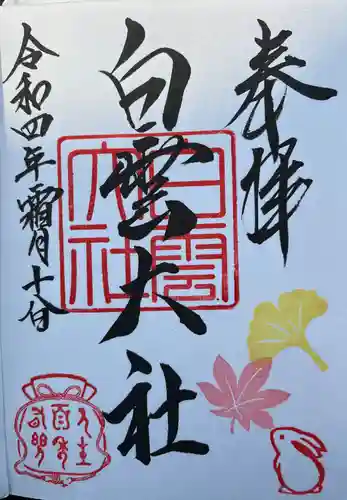 奉拝
白雲大社
令和四年霜月十八日
白雲大社